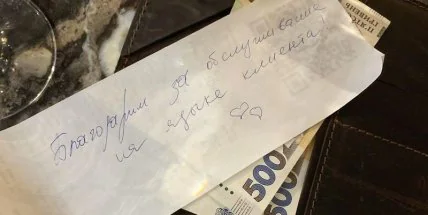 Благодарим за обслуживание
на языке клиента!
500
500